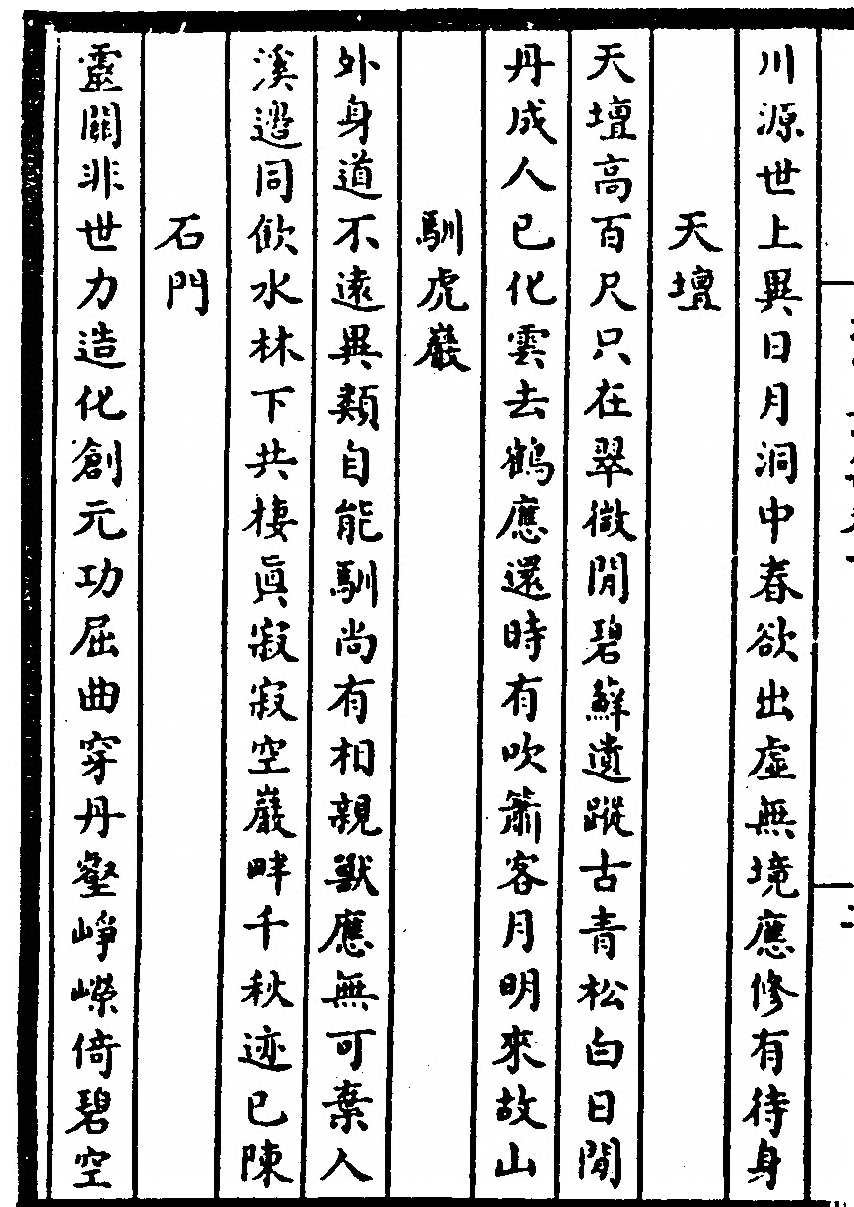 川源世上異日月洞中春欲出虛無境應修有待身
天壇
天壇高百尺只在翠微閒碧蘚遺蹤古青松白日閒
丹成人已化雲去鶴應還時有吹簫客月明來故山
馴虎巖
外身道不遠異類自能馴尚有相親獸應無可棄人
溪邊同飲水林下共棲眞寂寂空巖畔千秋迹已陳
石門
靈關非世力造化創元功屈曲穿丹壑崢嶸倚碧空